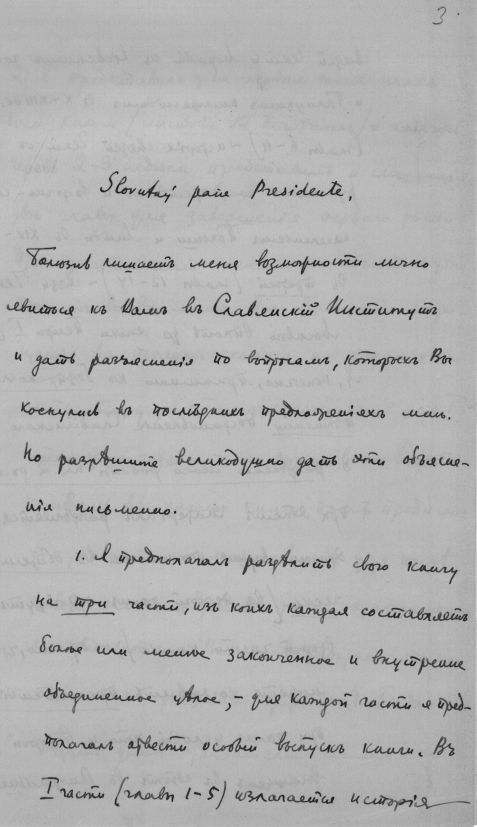 3.
Slovutný pane Presidente,
Болѣзнь лишаетъ меня возможности лично
явиться къ Вамъ въ Славянскій Институтъ
и дать разъясненія по вопросамъ, которыхъ Вы
коснулись въ послѣднихъ предложеніяхъ мнѣ.
Но разрѣшите великодушно дать эти объясне-
нія письменно.
1. Я предполагалъ раздѣлить свою книгу
на три части, изъ коихъ каждая составляетъ
болѣе или менѣе законченное и внутренне
объединенное цѣлое, – для каждой части я пред-
полагалъ отвести особый выпускъ книги. Въ
I части (главы 1–5) излагается исторія